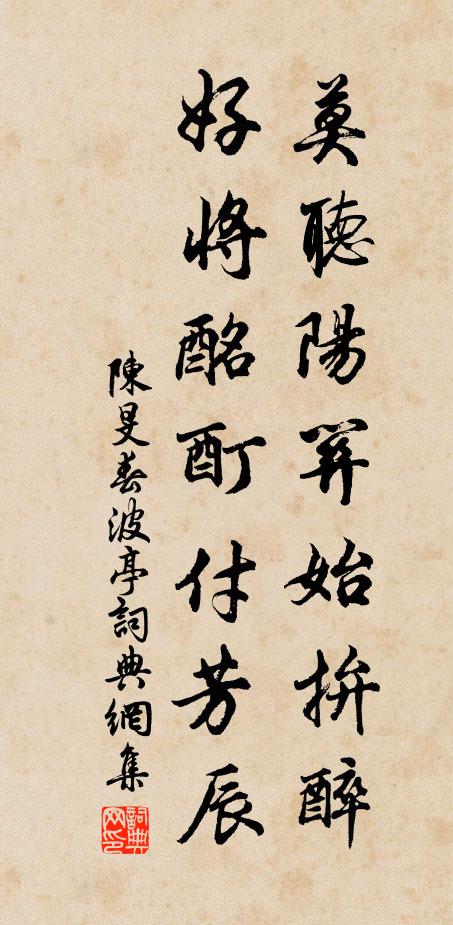 莫聽陽關始拚醉
好將酩酊付芳辰
陳旻春波亭詞典網集
詞典
网印